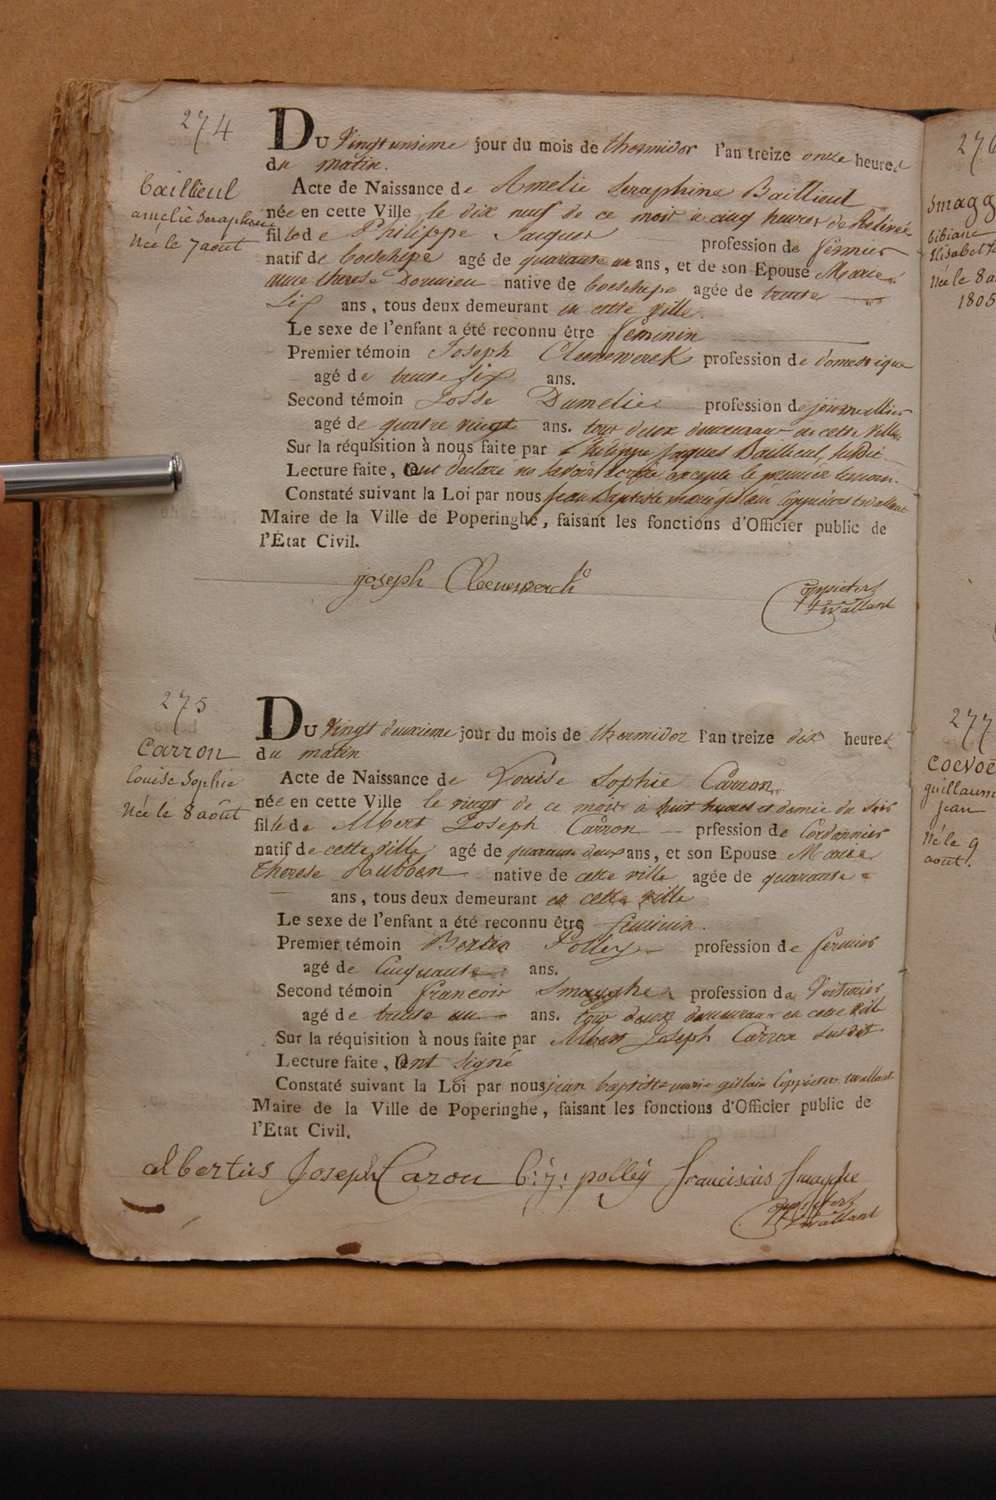 274
Bailleul
amelie Seraphine
Née le 7 août
Du Vingt unieme jour du mois de thermidor l'an treize onze heures
du matin.
Acte de Naissance de Amelie Seraphine Baillieul
née en cette Ville le dix neuf de ce mois à cinq heures de
fille de Philippe Jacques profession de fermier
natif de boeschepe agé de quarante un ans, et de son Epouse Marie
anne therese native de boeschepe agée de trente
Six ans, tous deux demeurant en cette ville.
Le sexe de l'enfant a été reconnu être feminin
Premier témoin Joseph Cleenewerck profession de domestique
agé de trente six ans.
Second témoin Josse Dumelie profession de journallier
agé de quatre vingt ans. tous deux demeurant en cette ville
Sur la réquisition à nous faite par Philippe Jacques Baillieul, susdit
Lecture faite, Ont declaré ne savoir excepte le premier temoin.
Constaté suivant la Loi par nous jean Baptiste marie gislain Coppieters twallant
Maire de la Ville de Poperinghe, faisant les fonctions d'Officier public de
l'État Civil.
joseph Cleenewerck
Coppieters
twallant
275
Carron
Louise Sophie
Née le 8 août
Du Vingt deuxieme jour du mois de thermidor l'an treize dix heures
du matin
Acte de Naissance de Louise Sophie Carron
née en cette Ville le vingt de ce mois à huit heures et demie du soir
fille de Albert Joseph Carron prfession de Cordonnier
natif de cette ville agé de quarante deux ans, et son Epouse Marie
therese Hubben native de cette ville agée de quarante
ans, tous deux demeurant en cette ville
Le sexe de l'enfant a été reconnu être feminin.
Premier témoin Folley profession de fermier
agé de Cinquante ans.
Second témoin francois Smaeghe profession de Voiturier
agé de trente un ans. tous deux demeurant en cette ville
Sur la réquisition à nous faite par Albert Joseph Carron susdit
Lecture faite, Ont signé
Constaté suivant la Loi par nous jean baptiste marie gislain Coppieters twallant
Maire de la Ville de Poperinghe, faisant les fonctions d'Officier public de
l'État Civil.
albertus Joseph Caron b: j: polley franciscus Smaghe
Coppieters
twallant
276
Smagg
bibiane
Elisabeth
Née le 8 a
1805
277
Coevoe
guillaume
jean
Né le 9
août.